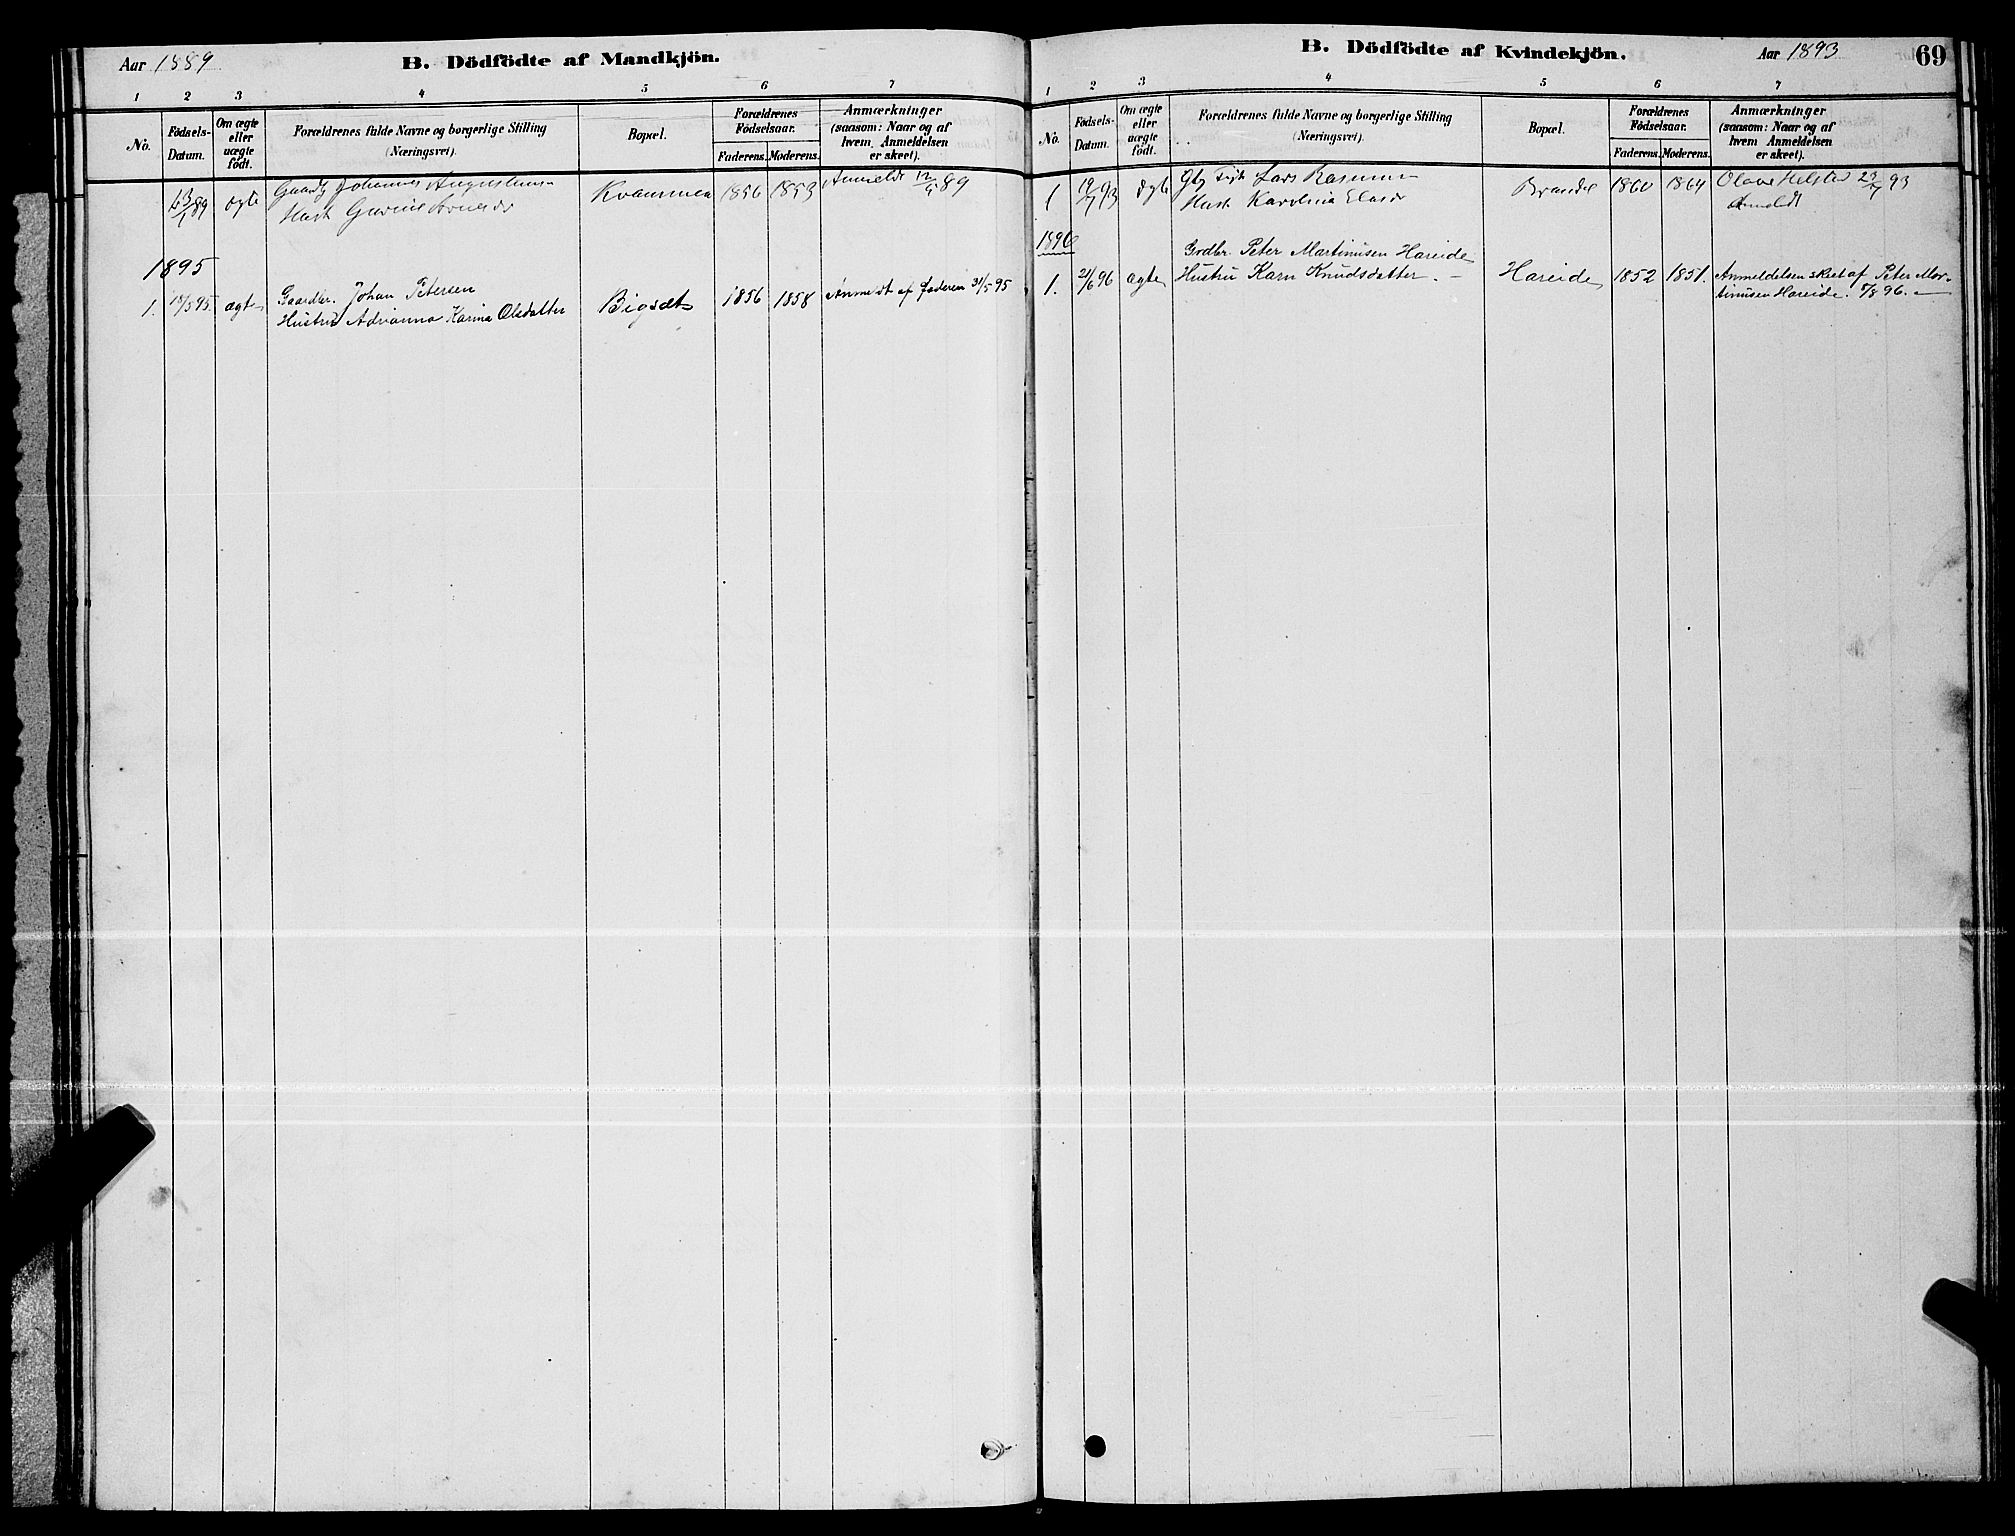 Aar 1889
B. Dödfödte af Mandkjön.
1 2 3 4 5 6 7
No.
Födsels-
Datum.
Om ægte
eller
uægte
födt.
Forældrenes fulde Navne og borgerlige Stilling
(Næringsvei).
Bopæl.
Forældrenes
Födselsaar.
Faderens. Moderens.
Anmærkninger
(saasom: Naar og af
hvem Anmeldelsen
er skeet).
ægte
Johannes
Hust
1856 1853
89
1895
1. 95 ægte
Gaardbr. Johan Petersen
Hustru Adrianna Karina Olsdatter
Bigsæt
1856 1858
Anmeldt af faderen 31/5 95
B. Dödfödte af Kvindekjön.
Aar 1893
69
1 2 3 4 5 6 7
No.
Födsels-
Datum.
Om ægte
eller
uægte
födt.
Forældrenes fulde Navne og borgerlige Stilling
(Næringsvei).
Bopæl.
Forældrenes
Födselsaar.
Faderens. Moderens.
Anmærkninger
(saasom: Naar og af
hvem Anmeldelsen
er skeet).
1 19/7 93 ægte
Lars
Hust Karolina
Brandal
1860 1864
23/7 93
Anmeldt
1896
1. 21/6 96 ægte
Grdbr. Peter Martinusen Hareide
Hustru Karn Knudsdatter. –
Hareide
1852 1851.
Anmeldelsen skeet af Peter Mar-
tinusen Hareide. 96. –